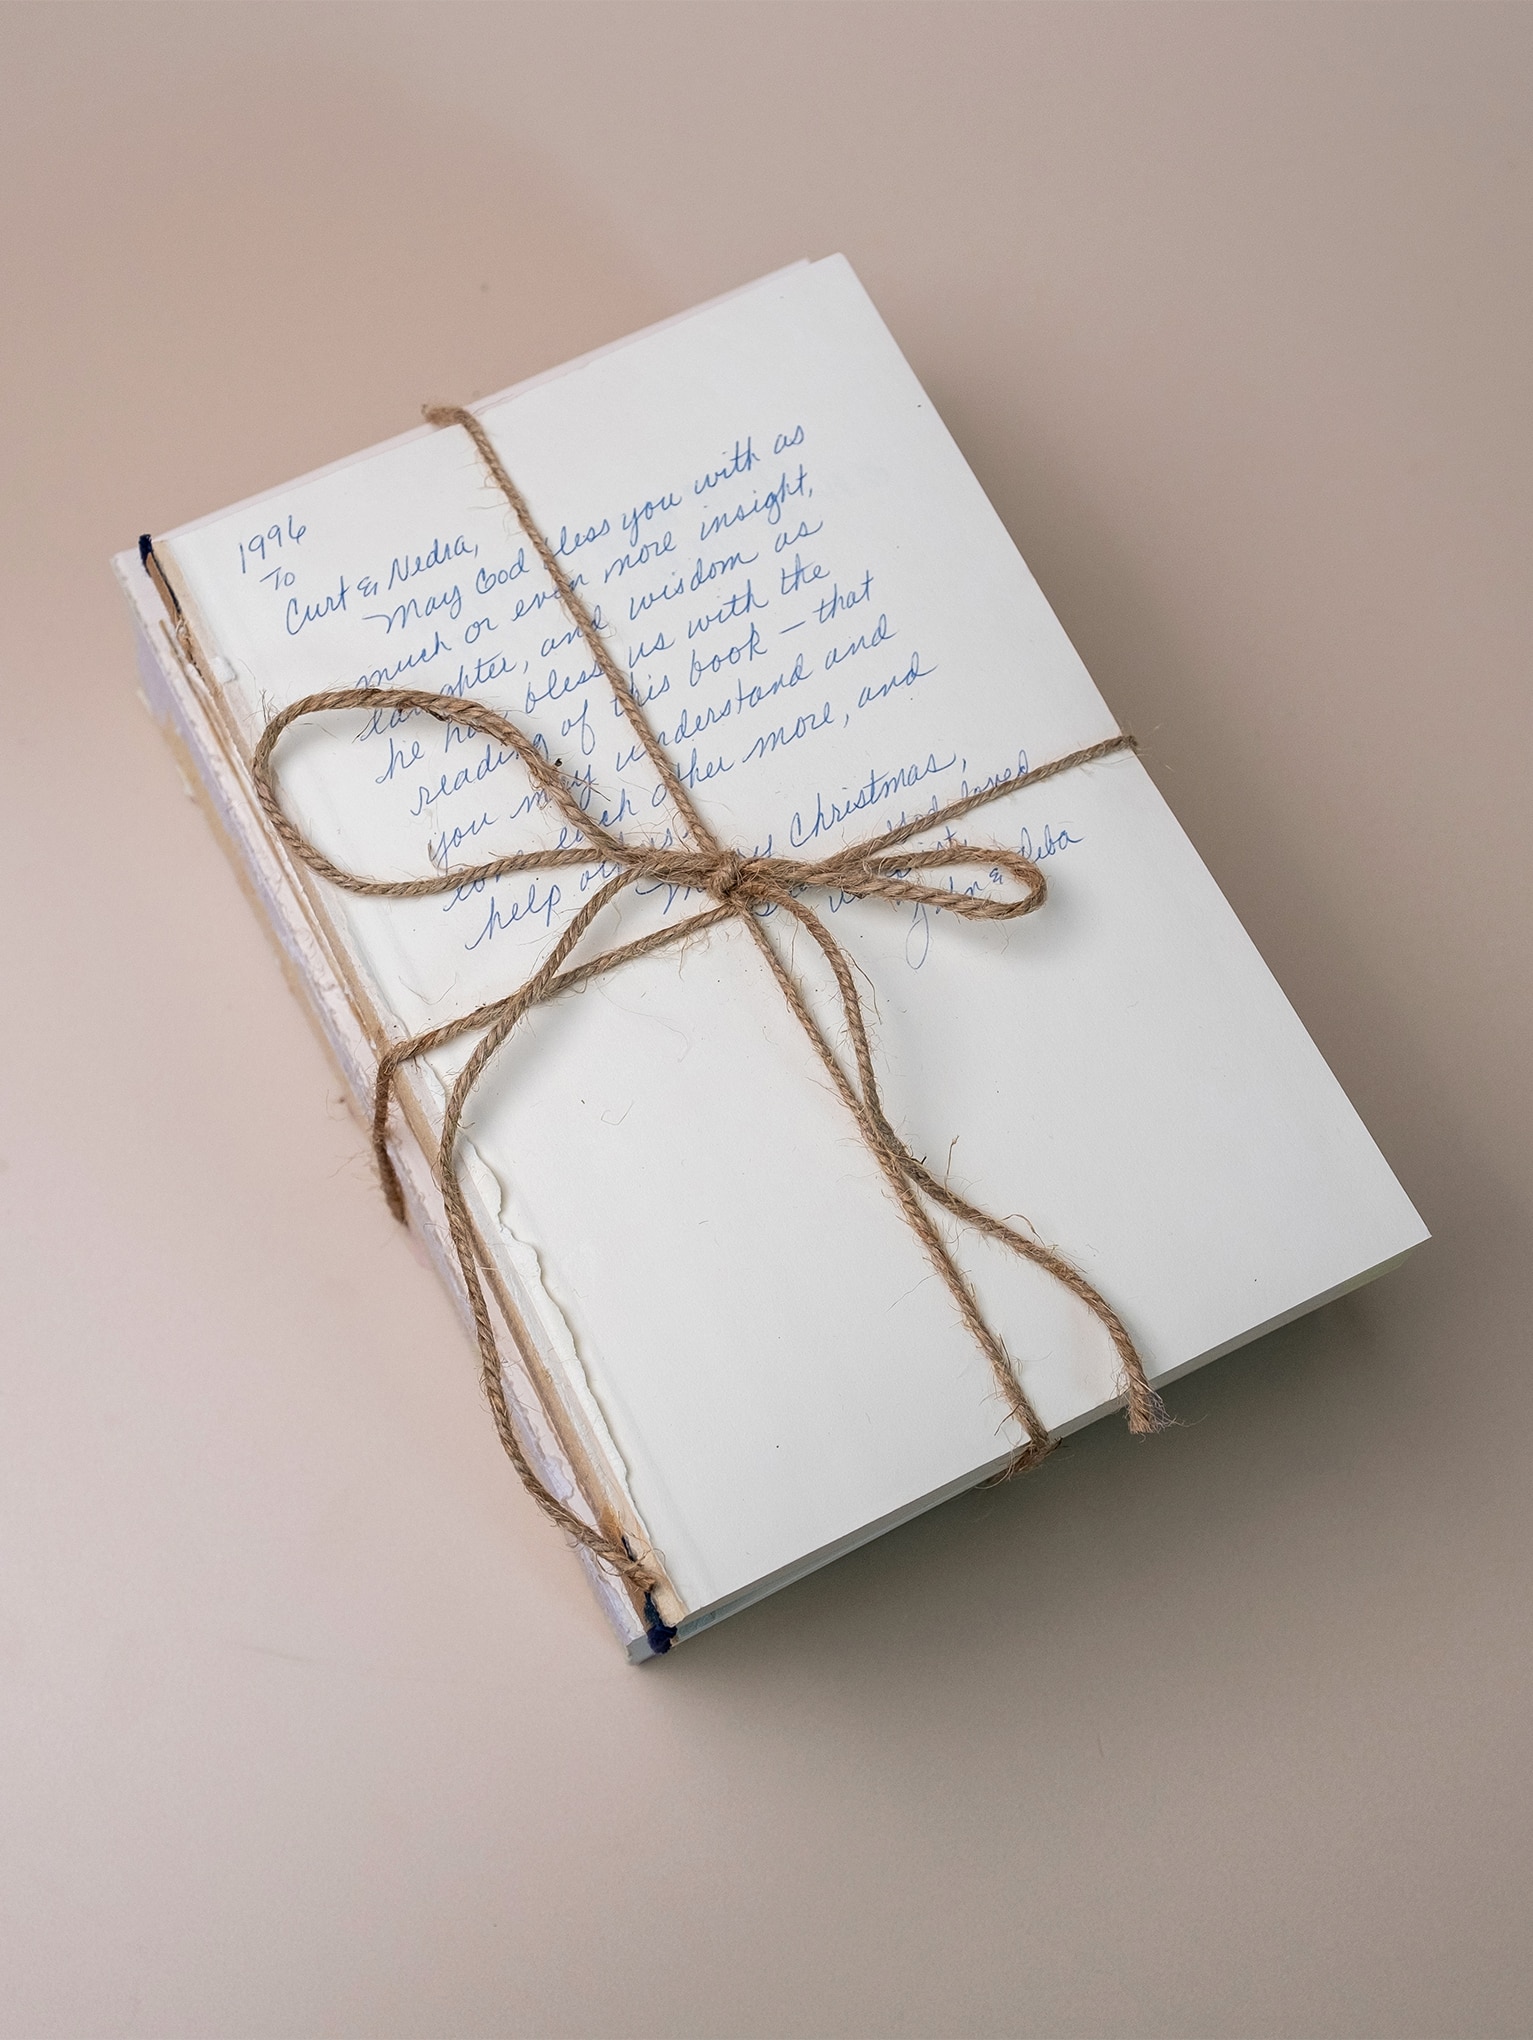 1996
To
Curt & Nedra,
May God bless you with as
much or even more insight,
laughter, and wisdom as
he has bless us with the
reading of this book — that
you may understand and
love each other more, and
help
Merry Christmas,
loved
John & Deba